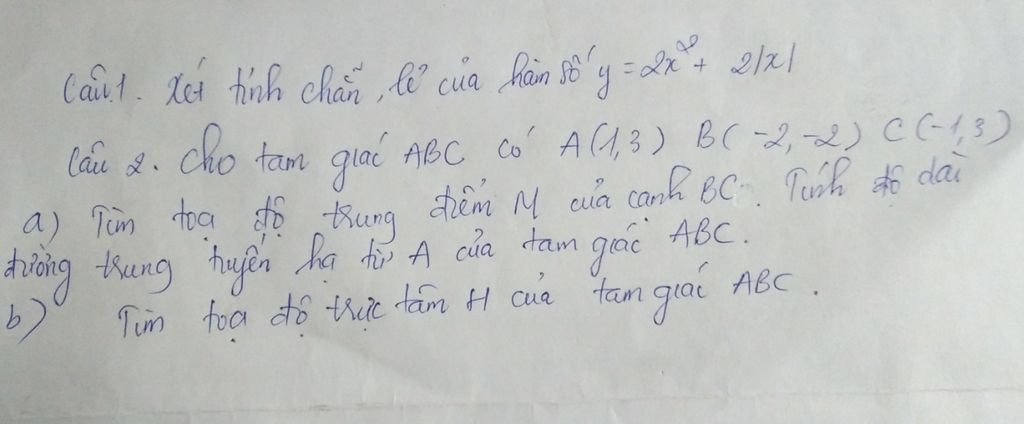 Câu 1. Xét tính chẵn, lẻ của hàm số y = 2x² + 2|x|
Câu 2. Cho tam giác ABC có A(1,3) B(-2,-2) C(-1,3)
a) Tìm tọa độ trung điểm M của cạnh BC. Tính độ dài
đường trung tuyến hạ từ A của tam giác ABC.
b) Tìm tọa độ trực tâm H của tam giác ABC.